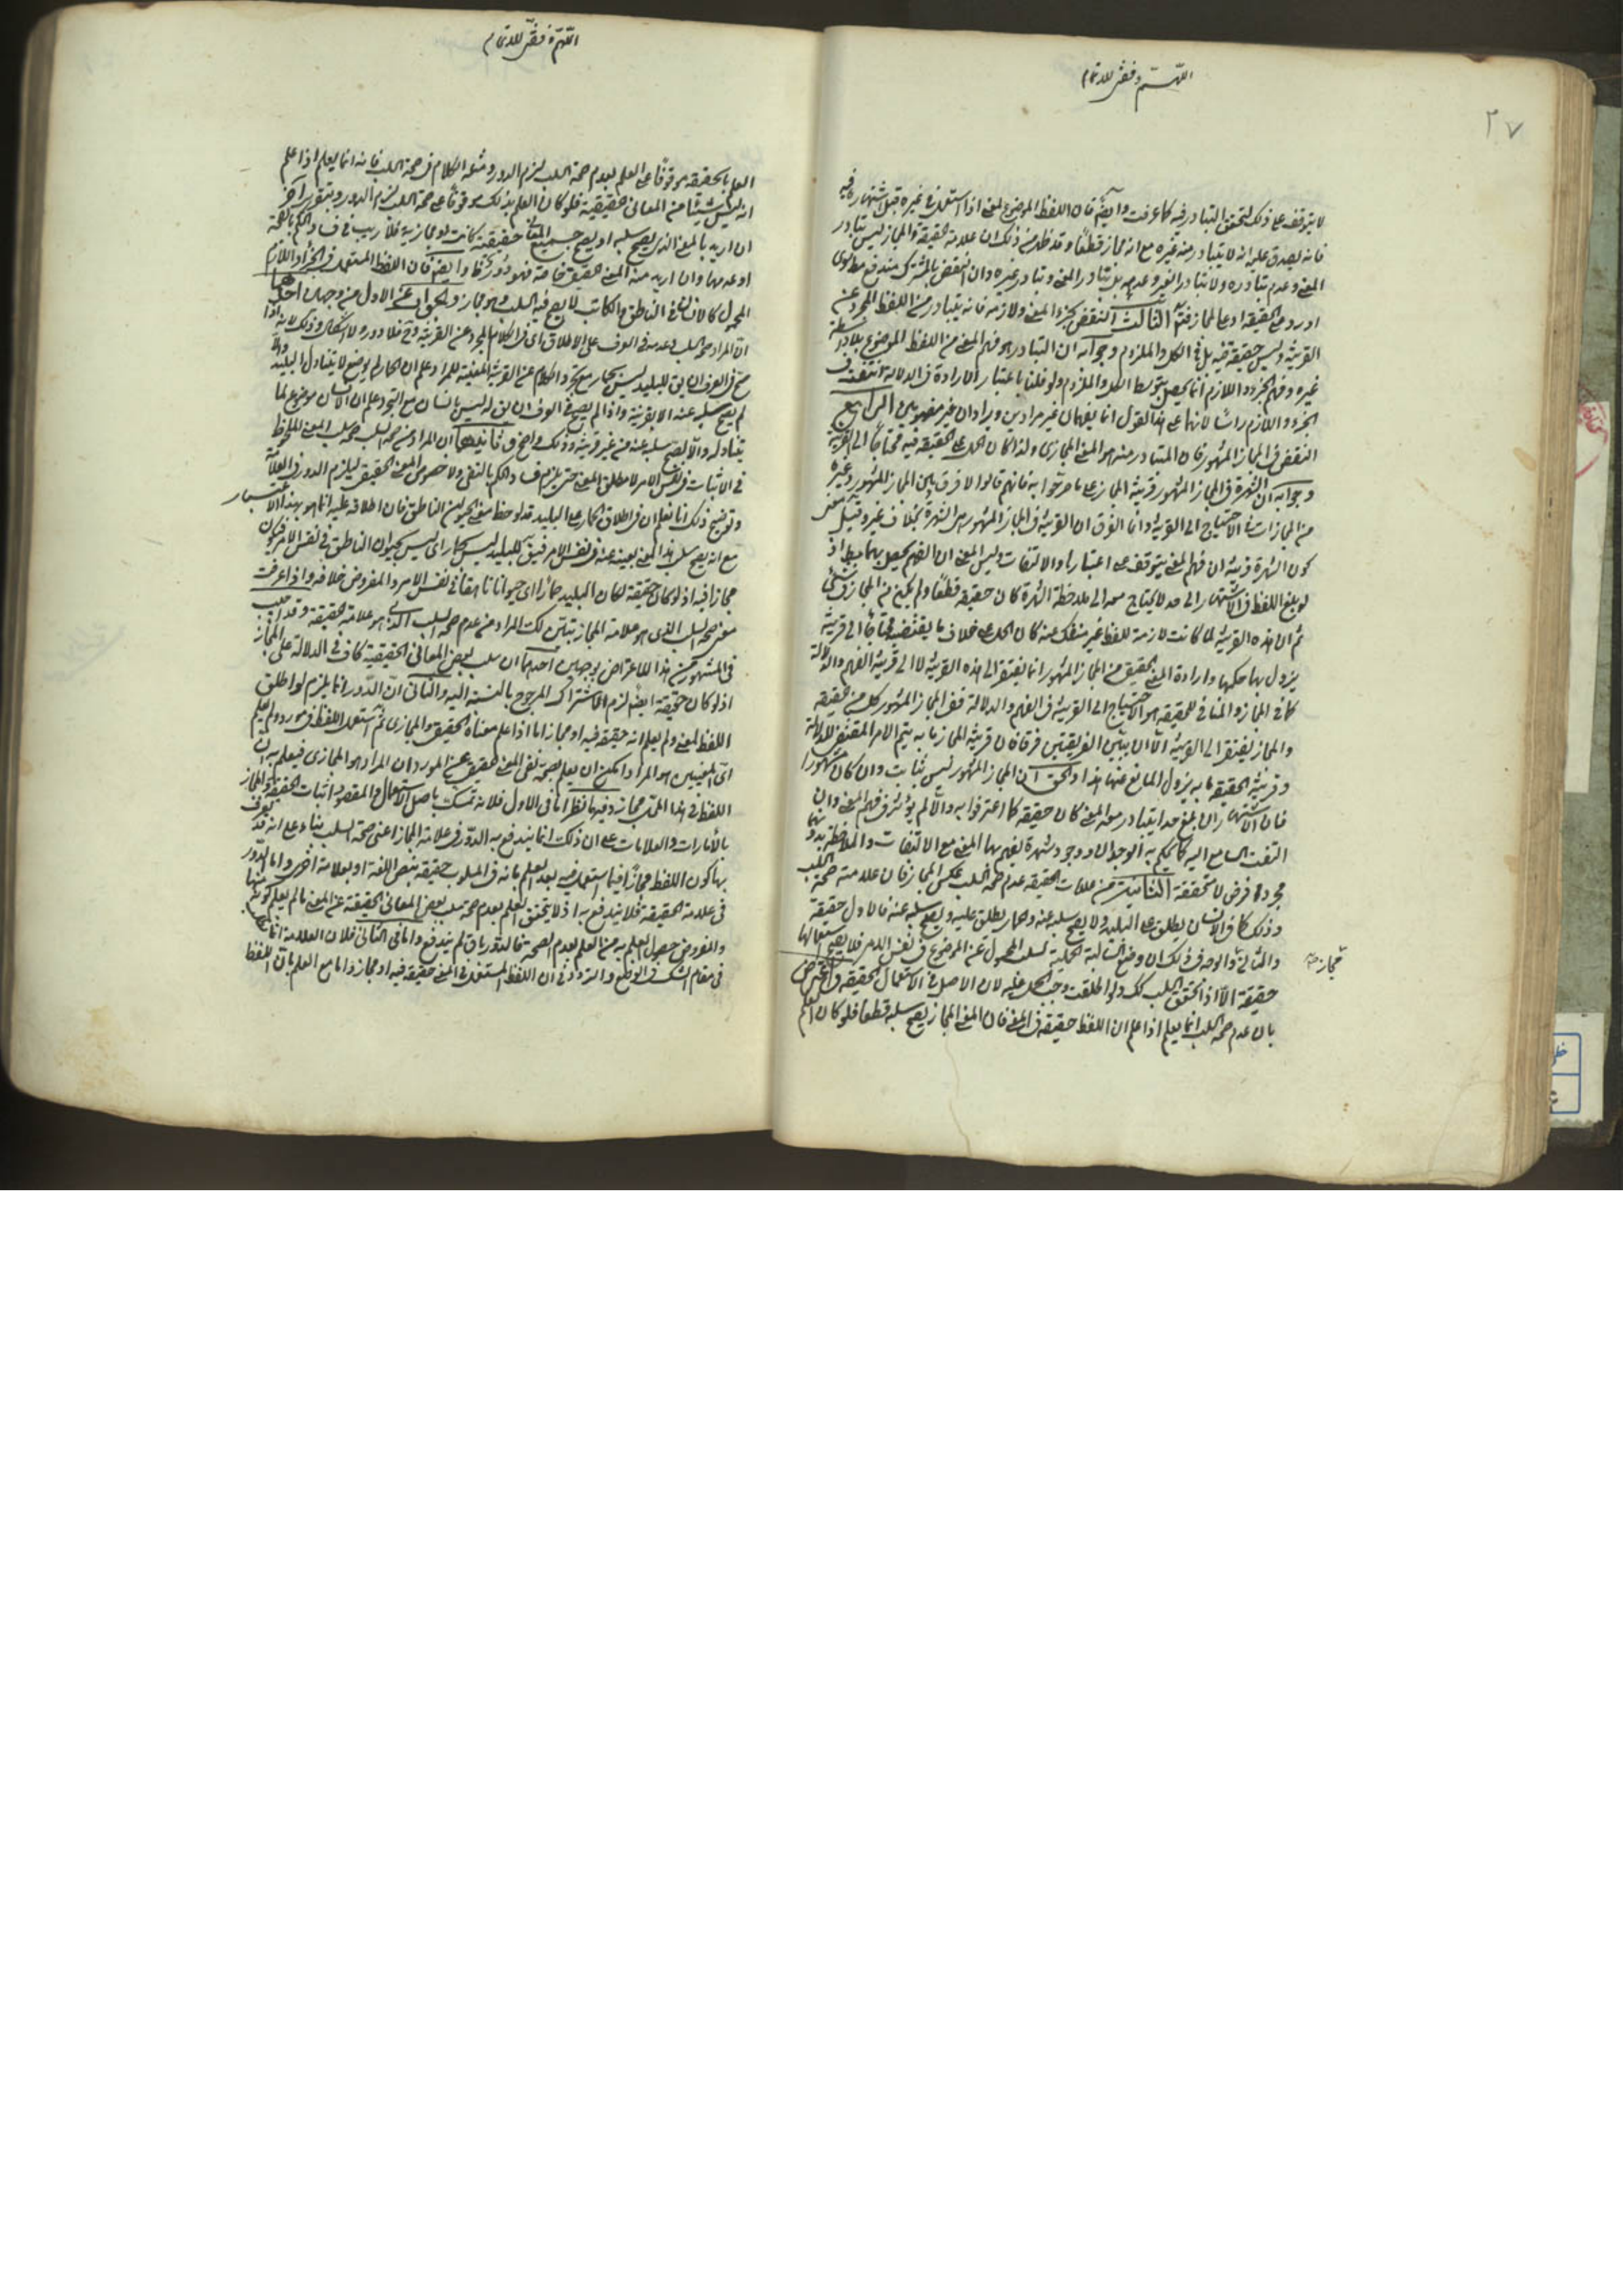 ٢٧
اللهم وفقني للاتمام
لا يتوقف على ذلك لتحقق التبادر فيه كما عرفت وايضا فان اللفظ الموضوع لمعنى اذا استعمل في غيره قبل اشتهاره فيه
فانه يصدق عليه انه لا يتبادر منه غيره مع انه مجاز قطعا وقد ظهر من ذلك ان علامة الحقيقة والمجاز ليس تبادر
المعنى وعدم تبادره ولا تبادر الغير وعدمه بل تبادر المعنى وتبادر غيره وان النقض بالمشترك مندفع مط سواء
اورد على الحقيقة او على المجاز فتدبر الثالث النقض بجزء المعنى ولازمه فانه يتبادر من اللفظ المجرد عن
القرينة وليس حقيقة فيه بل في الكل والملزوم وجوابه ان التبادر هو فهم المعنى من اللفظ الموضوع بلا واسطة
غيره وفهم الجزء واللازم انما يحصل بتوسط الكل والملزوم ولو قلنا باعتبار الارادة في الدلالة انتفت في
الجزء واللازم راسا لانهما على هذا القول انما يفهمان غير مرادين ويرادان غير مفهومين الرابع
النقض في المجاز المشهور فان المتبادر منه هو المعنى المجازي ولذا كان الحمل على الحقيقة فيه محتاجا الى القرينة
وجوابه ان الشهرة في المجاز المشهور قرينة المجاز على ما صرحوا به فانهم قالوا لا فرق بين المجاز المشهور وغيره
من المجازات في الاحتياج الى القرينة وانما الفرق ان القرينة في المجاز المشهور هي الشهرة بخلاف غيره وقيل معنى
كون الشهرة قرينة ان فهم المعنى يتوقف على اعتبارها والالتفات وليس المعنى ان الفهم يحصل بها مط اذ
لو بلغ اللفظ في الاشتهار الى حد لا يحتاج معه الى ملاحظة الشهرة كان حقيقة قطعا ولم يكن من المجاز في شيء
ثم ان هذه القرينة لما كانت لازمة للفظ غير منفك عنه كان الحمل على خلاف ما يقتضيه محتاجا الى قرينة
يزول بها حكمها وارادة المعنى الحقيقي من المجاز المشهور انما يفتقر الى هذه القرينة لا الى قرينة الفهم والدلالة
كما في المجاز والمنافي للحقيقة هو الاحتياج الى القرينة في الفهم والدلالة ففي المجاز المشهور كل من الحقيقة
والمجاز يفتقر الى القرينة الا ان بين القرينتين فرقا فان قرينة المجاز ما به يتم الامر المقتضي للدلالة
وقرينة الحقيقة ما به يزول المانع عنها هذا والحق ان المجاز المشهور ليس بثابت وان كان مشهورا
فان الاشتهار ان بلغ حدا يتبادر معه المعنى كان حقيقة كما اعترفوا به والا لم يؤثر في فهم المعنى وان
التفت السامع اليه كما يحكم به الوجدان ووجود شهرة يفهم بها المعنى مع الالتفات والملاحظة بدونهما
مجرد فرض لا تحقق له الثانية من علامات الحقيقة عدم صحة السلب بعكس المجاز فان علامته صحة السلب
وذلك كما في الانسان يطلق على البليد ولا يصح سلبه عنه وحمار يطلق عليه ويصح سلبه عنه فالاول حقيقة
والثاني مجاز والوجه في ذلك ان وضع السالبة الحملية لسلب المحمول عن الموضوع في نفس الامر فلا يصح استعمالها
حقيقة الا اذا تحقق السلب كك ولو اطلقت وجب الحمل عليه لان الاصل في الاستعمال الحقيقة واعترض
بان عدم صحة السلب انما يعلم اذا علم ان اللفظ حقيقة في المعنى فان المعنى المجاز يصح سلبه قطعا فلو كان العلم
مجاز صح
اللهم وفقني للاتمام
العلم بالحقيقة موقوفا على العلم بعدم صحة السلب لزم الدور ومثله الكلام في صحة السلب فانه انما يعلم اذا علم
انه ليس شيئا من المعاني الحقيقية فلو كان العلم بذلك موقوفا على صحة السلب لزم الدور وبتقرير آخر
ان اريد بالمعنى الذي يصح سلبه او لا يصح جميع المعاني حقيقية كانت او مجازية فلا ريب في فساد الحكم بالصحة
او عدمها وان اريد منه المعنى الحقيقي خاصة فهو دور كما وايضا فان اللفظ المستعمل في الجزء او اللازم
المحمول كالانسان في الناطق والكاتب لا يصح فيه السلب وهو مجاز والجواب عن الاول من وجهين احدهما
ان المراد صحة السلب وعدمه في العرف على الاطلاق اي في الكلام المجرد عن القرينة وح فلا دور ولا اشكال وذلك لانه اذا
صح في العرف ان يق للبليد ليس بحمار مع تجرد الكلام عن القرينة المعينة للمراد علم ان الحمار لم يوضع لما يتناول البليد والا
لم يصح سلبه عنه الا بقرينة واذا لم يصح في العرف ان يق له ليس بانسان مع التجرد علم ان الانسان موضوع لما
يتناوله والا لصح سلبه عنه من غير قرينة وذلك واضح وثانيهما ان المراد من صحة السلب صحة سلب المعنى الملحوظ
في الاثبات في نفس الامر لا مطلق المعنى حتى يلزم فساد الحكم بالنفي ولا خصوص المعنى الحقيقي ليلزم الدور في العلامة
وتوضيح ذلك انا نعلم ان في اطلاق الحمار على البليد قد لوحظ معنى الحيوان الناطق فان اطلاقه عليه انما هو بهذا الاعتبار
مع انه يصح سلب هذا المعنى بعينه عنه في نفس الامر فيق للبليد ليس بحمار اي ليس بحيوان الناهق في نفس الامر فيكون
مجازا فيه اذ لو كان حقيقة لكان البليد حمارا اي حيوانا ناهقا في نفس الامر والمفروض خلافه واذا عرفت
معنى صحة السلب الذي هو علامة المجاز تبين لك المراد من عدم صحة السلب الذي هو علامة الحقيقة وقد اجيب
في المشهور عن هذا الاعتراض بوجهين احدهما ان سلب بعض المعاني الحقيقية كاف في الدلالة على المجاز
اذ لو كان حقيقة ايضا لزم الاشتراك المرجوح بالنسبة اليه والثاني ان الدور انما يلزم لو اطلق
اللفظ لمعنى ولم يعلم انه حقيقة فيه او مجاز اما اذا علم معناه الحقيقي والمجازي ثم استعمل اللفظ في مورد ولم يعلم
اي المعنيين هو المراد امكن ان يعلم بصحة نفي المعنى الحقيقي عن المورد ان المراد هو المجازي فيعلم به ان
اللفظ في هذا المحل مجاز وفيهما نظر اما في الاول فلانه تمسك باصل الاستعمال والمقصود اثبات الحقيقة والمجاز
بالامارات والعلامات على ان ذلك انما يندفع به الدور في علامة المجاز اعني صحة السلب بناء على انه قد يعرف
بها كون اللفظ مجازا فيما استعمل فيه بعد العلم بانه في المسلوب حقيقة بنص اللغة او بعلامة اخرى واما الدور
في علامة الحقيقة فلا يندفع به اذ لا يتحقق العلم بعدم صحة سلب بعض المعاني الحقيقية عن المعنى ما لم يعلم كونه منها
والمفروض حصول العلم به من العلم بعدم الصحة فالدور باق لم يندفع واما في الثاني فلان العلامة انما
في مقام الشك في الوضع والتردد في ان اللفظ المستعمل في المعنى حقيقة فيه او مجاز واما مع العلم بان اللفظ